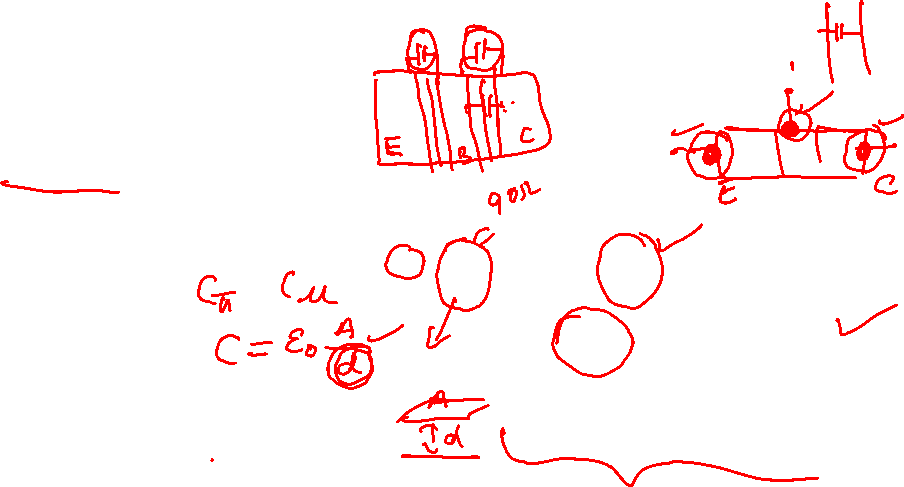 E B C
E C
90Ω
Cπ Cμ
C = ε₀ A/d
A
d